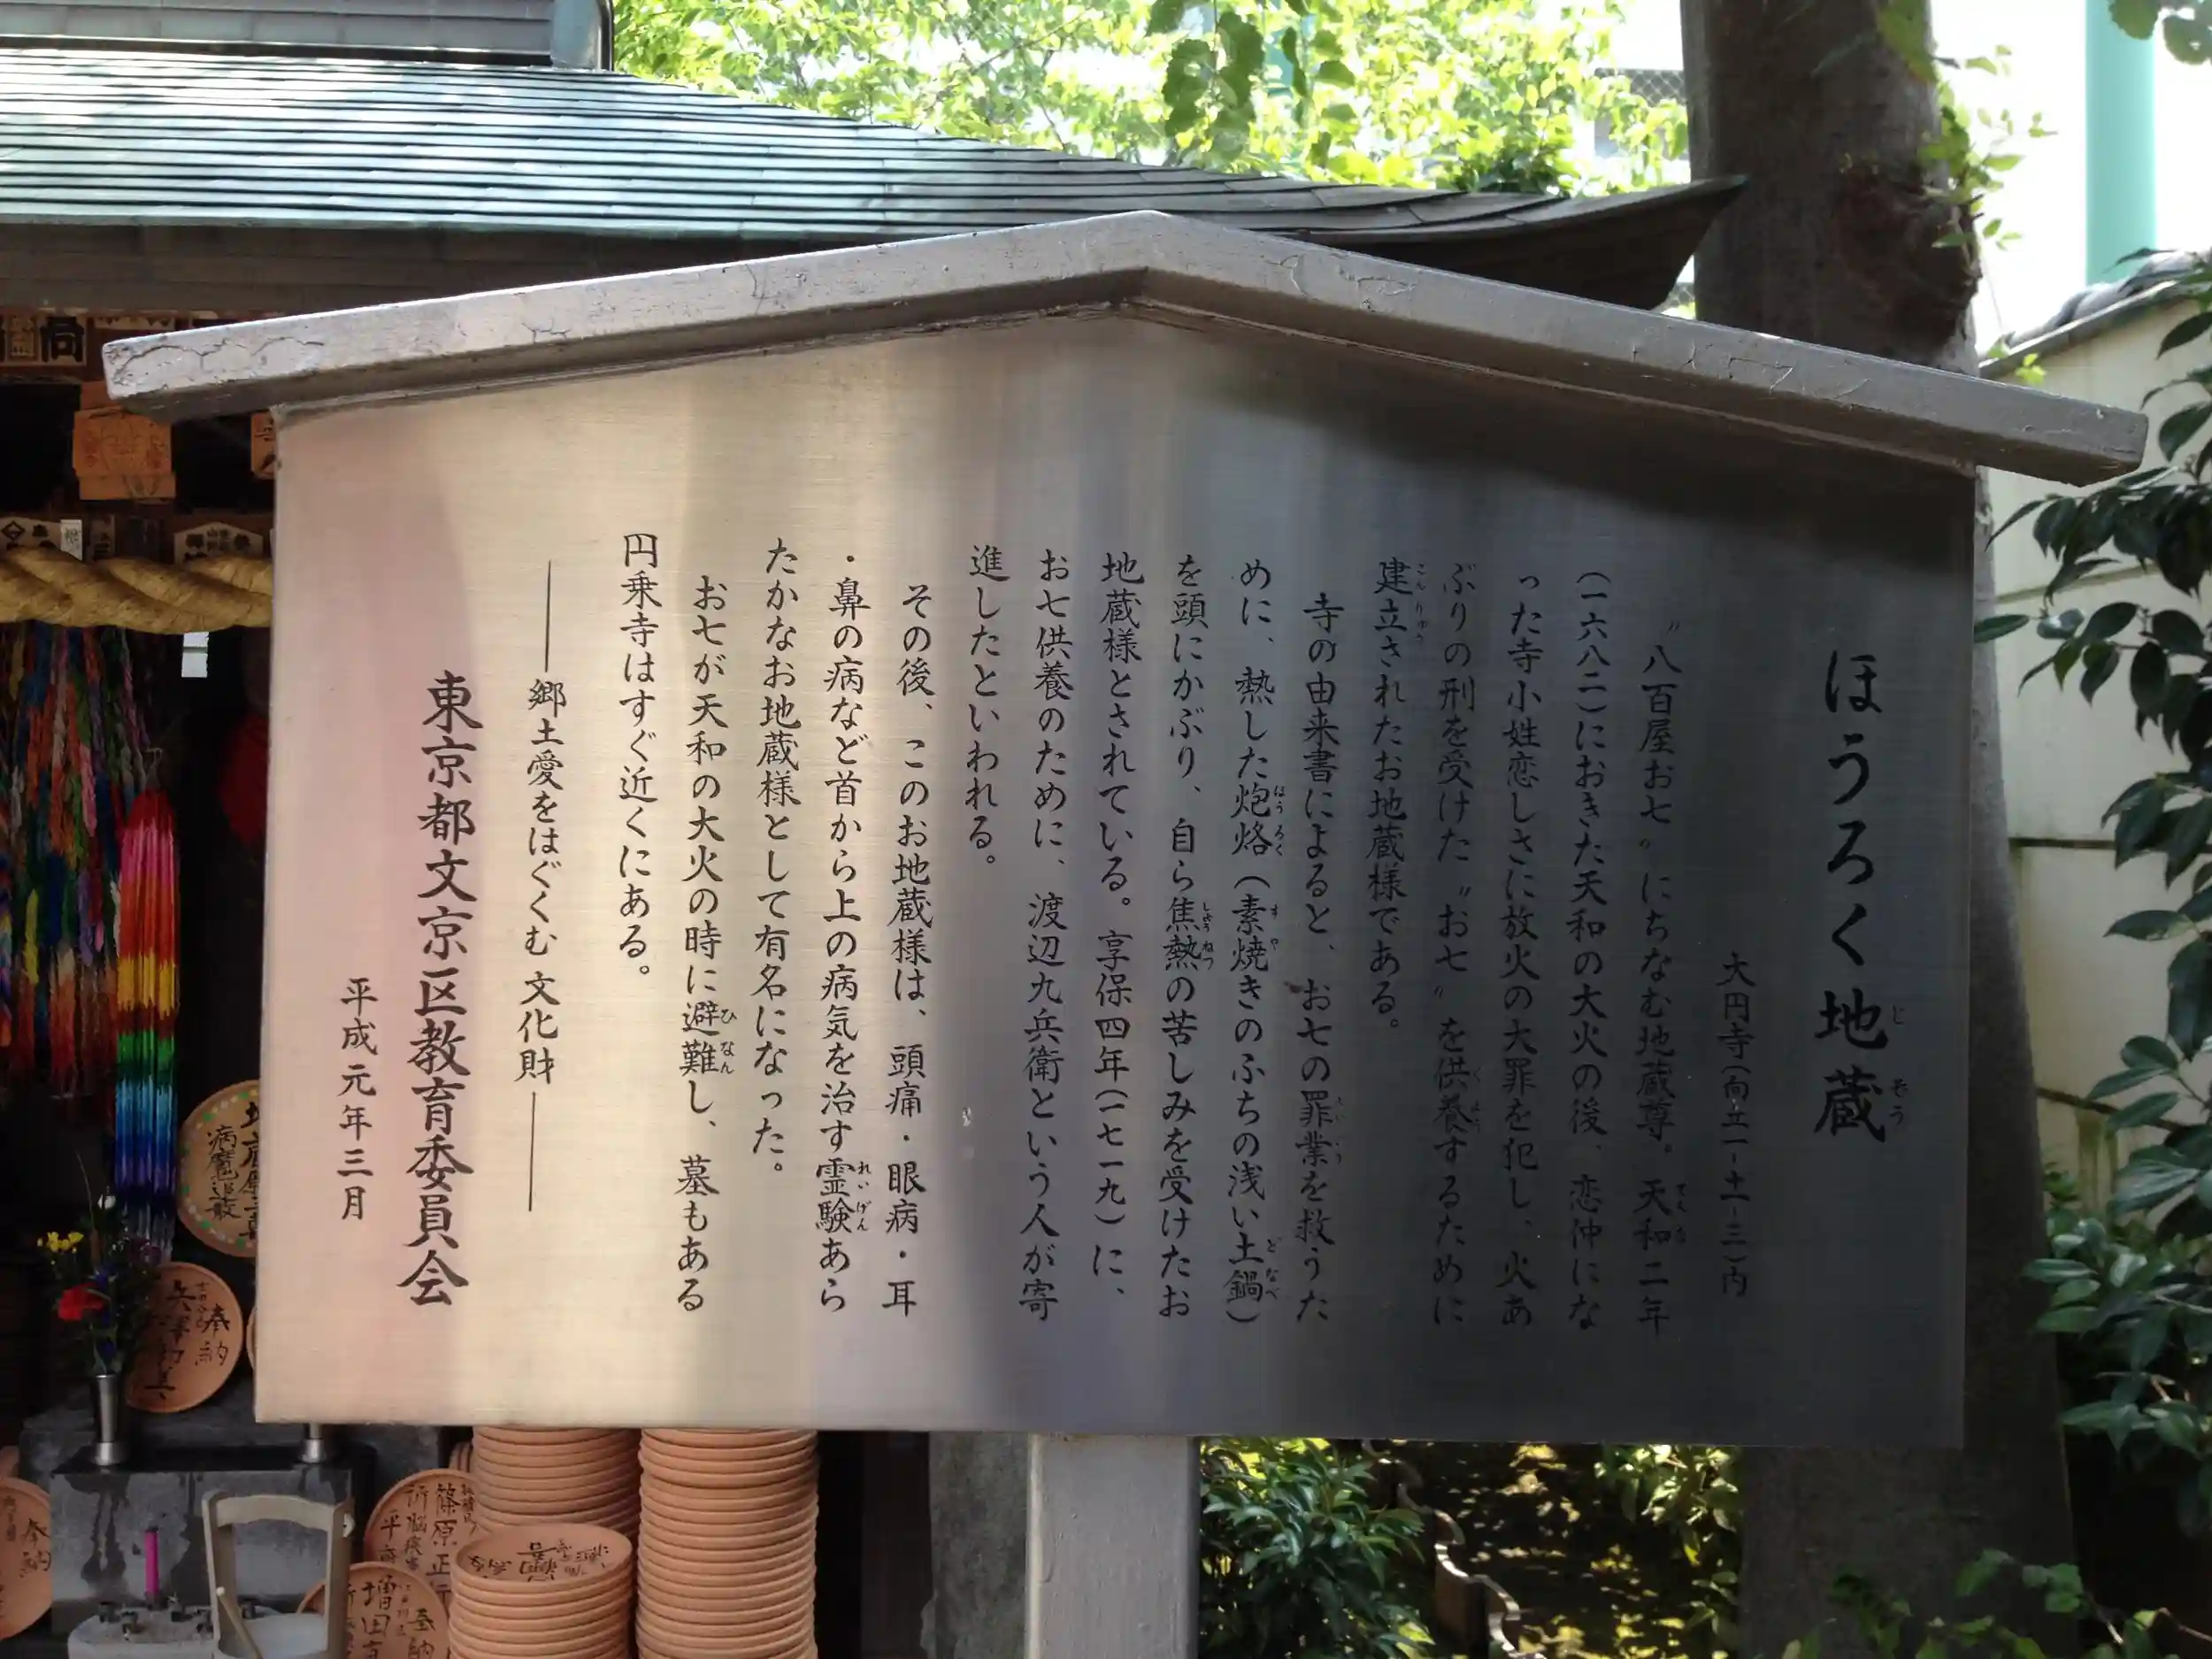 ほうろく地蔵
じ
ぞう
大円寺(向丘一-十一-三)内
〝八百屋お七〟にちなむ地蔵尊。天和二年
てんな
(一六八二)におきた天和の大火の後、恋仲にな
った寺小姓恋しさに放火の大罪を犯し、火あ
ぶりの刑を受けた〝お七〟を供養するために
くよう
建立されたお地蔵様である。
こんりゅう
寺の由来書によると、お七の罪業を救うた
めに、熱した炮烙(素焼きのふちの浅い土鍋)
ほうろく
すや
どなべ
を頭にかぶり、自ら焦熱の苦しみを受けたお
しょうねつ
地蔵様とされている。享保四年(一七一九)に、
お七供養のために、渡辺九兵衛という人が寄
進したといわれる。
その後、このお地蔵様は、頭痛・眼病・耳
・鼻の病など首から上の病気を治す霊験あら
れいげん
たかなお地蔵様として有名になった。
お七が天和の大火の時に避難し、墓もある
ひなん
円乗寺はすぐ近くにある。
――郷土愛をはぐくむ 文化財――
東京都文京区教育委員会
平成元年三月
病魔退散
奉納
奉納
篠原正
増田
奉納